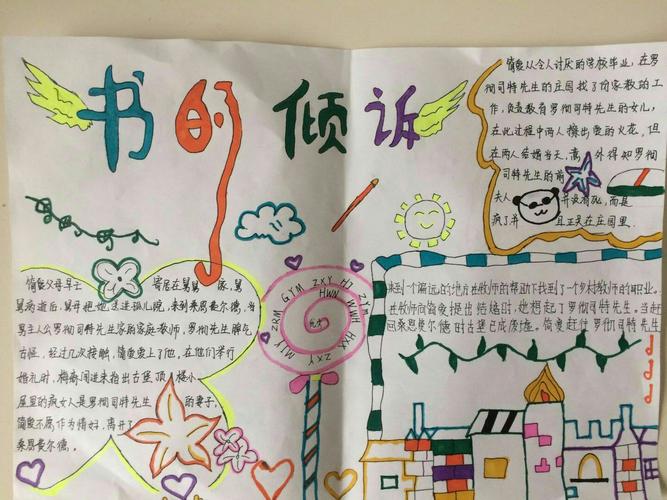 书的倾诉
简爱从令人讨厌的学校毕业，在罗
彻司特先生的庄园找了份家教的工
作，负责教育罗彻司特先生的女儿，
在此过程中两人擦出爱的火花，但
在两人结婚当天，意外得知罗彻
司特先生的前
夫人并没有死，而是
疯了并且正关在庄园里.
简爱父母早亡 寄居在舅舅家，舅
舅病逝后，舅母把她送进孤儿院，来到桑恩费尔德，当
男主人公罗彻司特先生家的家庭教师，罗彻先生脾气
古怪，经过几次接触，简爱爱上了他，在他们举行
婚礼时，梅森闯进来指出古堡顶楼小
屋里的疯女人是罗彻司特先生的妻子，
简爱不愿作为情妇，离开了
桑恩费尔德。
ZXM GYM ZXY HJ ZXM
HWN HWH
MJY ZXY HXX
来到一个偏远的地方在牧师的帮助下找到了个乡村教师的职业。
在牧师向简爱提出结婚时，她想起了罗彻司特先生，当赶
回桑恩费尔德时古堡已成废墟，简爱赶往罗彻司特先生